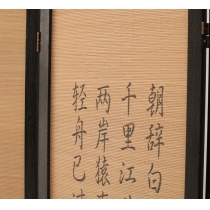 朝辞白
千里江
两岸猿
轻舟已